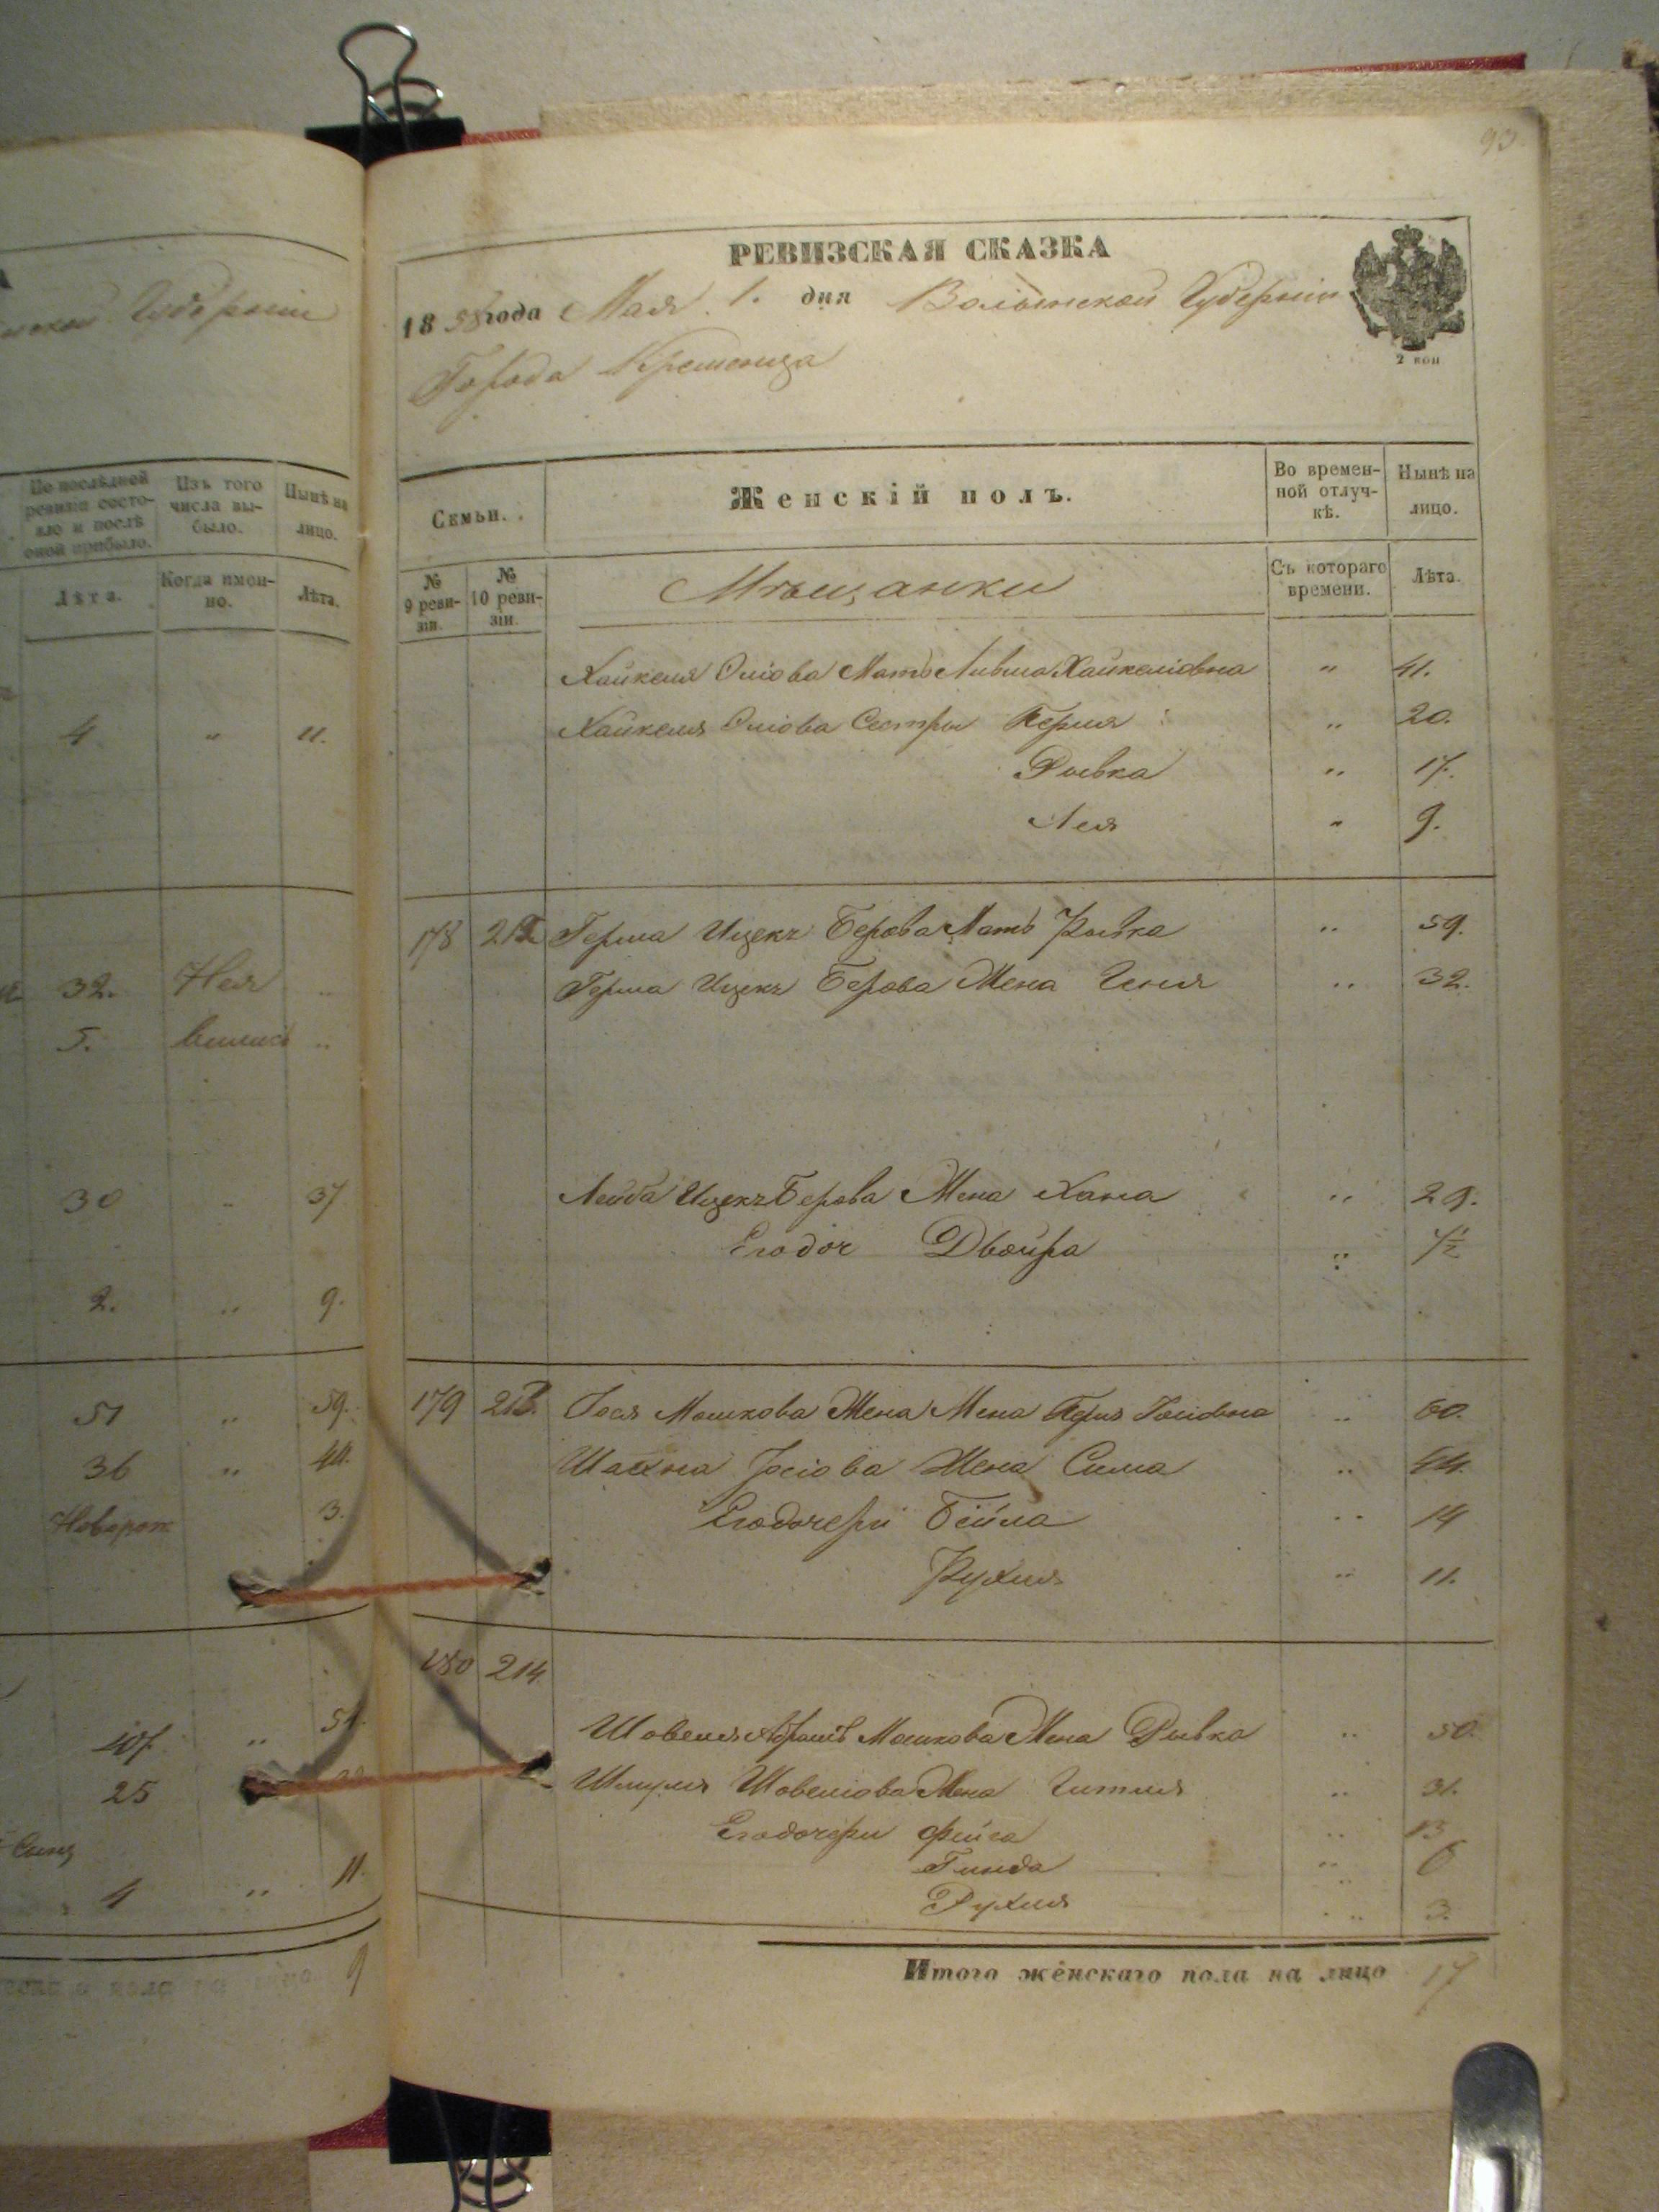 93
Губерніи
РЕВИЗСКАЯ СКАЗКА
1858 года Мая 1. дня Волынской Губерніи
2 коп
Города Кременца
По послѣдней ревизіи состояло и послѣ оной прибыло.
Изъ того числа выбыло.
Нынѣ на лицо.
Лѣта.
Когда именно.
Лѣта.
4 " 11.
32. Нея ..
5. вились ..
30 .. 37
2. .. 9.
51 .. 59.
36 .. 44.
Новорож 3.
47. .. 54.
25
4 .. 11.
9
Семьи.
Женскій полъ.
Во временной отлучкѣ.
Нынѣ на лицо.
№ 9 ревизіи.
№ 10 ревизіи.
Мѣщанки
Съ котораго времени.
Лѣта.
Хайкеля Мать Хайкеліовна " 41.
Хайкеля Сестры Перля .. 20.
Рывка .. 17.
Лея " 9.
178 212 Герша Ицекъ Берова Мать Рывка .. 59.
Герша Ицекъ Берова Жена Геня .. 32.
Лейба Ицекъ Берова Жена Хана .. 29.
Его доч Двойра .. ½
179 213. Іося Мошкова Жена .. 60.
Шахна Іосіова Жена Сима .. 44.
Его дочери Бейла .. 14
Рухля .. 11.
180 214
Шовеля Мошкова Жена Рывка .. 50.
Шмуля Шовеліова Жена Гитля .. 31.
Его дочери Фейга .. 13
Гинда .. 6
Рухля .. 3.
Итого женскаго пола на лицо 17